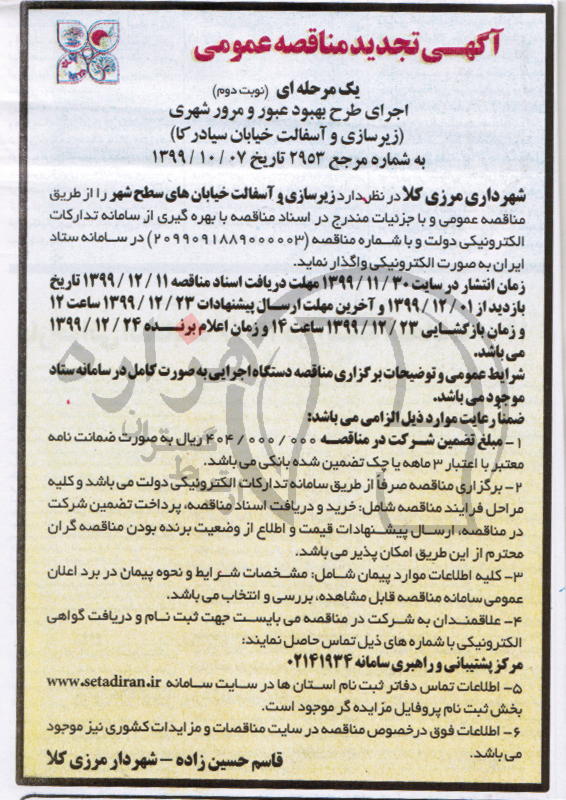 آگهی تجدید مناقصه عمومی
یک مرحله ای (نوبت دوم)
اجرای طرح بهبود عبور و مرور شهری
(زیرسازی و آسفالت خیابان سیادرکا)
به شماره مرجع ۲۹۵۳ تاریخ ۰۷ / ۱۰ / ۱۳۹۹
شهرداری مرزی کلا در نظر دارد زیرسازی و آسفالت خیابان های سطح شهر را از طریق
مناقصه عمومی و با جزئیات مندرج در اسناد مناقصه با بهره گیری از سامانه تدارکات
الکترونیکی دولت و با شماره مناقصه (۲۰۹۹۰۹۱۸۸۹۰۰۰۰۰۳) در سامانه ستاد
ایران به صورت الکترونیکی واگذار نماید.
زمان انتشار در سایت ۳۰ / ۱۱ / ۱۳۹۹ مهلت دریافت اسناد مناقصه ۱۱ / ۱۲ / ۱۳۹۹ تاریخ
بازدید از ۰۱ / ۱۲ / ۱۳۹۹ و آخرین مهلت ارسال پیشنهادات ۲۳ / ۱۲ / ۱۳۹۹ ساعت ۱۲
و زمان بازگشایی ۲۳ / ۱۲ / ۱۳۹۹ ساعت ۱۴ و زمان اعلام برنده ۲۴ / ۱۲ / ۱۳۹۹
می باشد.
شرایط عمومی و توضیحات برگزاری مناقصه دستگاه اجرایی به صورت کامل در سامانه ستاد
موجود می باشد.
ضمناً رعایت موارد ذیل الزامی می باشد:
۱- مبلغ تضمین شرکت در مناقصه ۴۰۴/۰۰۰/۰۰۰ ریال به صورت ضمانت نامه
معتبر با اعتبار ۳ ماهه یا چک تضمین شده بانکی می باشد.
۲- برگزاری مناقصه صرفاً از طریق سامانه تدارکات الکترونیکی دولت می باشد و کلیه
مراحل فرایند مناقصه شامل: خرید و دریافت اسناد مناقصه، پرداخت تضمین شرکت
در مناقصه، ارسال پیشنهادات قیمت و اطلاع از وضعیت برنده بودن مناقصه گران
محترم از این طریق امکان پذیر می باشد.
۳- کلیه اطلاعات موارد پیمان شامل: مشخصات شرایط و نحوه پیمان در برد اعلان
عمومی سامانه مناقصه قابل مشاهده، بررسی و انتخاب می باشد.
۴- علاقمندان به شرکت در مناقصه می بایست جهت ثبت نام و دریافت گواهی
الکترونیکی با شماره های ذیل تماس حاصل نمایند:
مرکز پشتیبانی و راهبری سامانه ۰۲۱۴۱۹۳۴
۵- اطلاعات تماس دفاتر ثبت نام استان ها در سایت سامانه www.setadiran.ir
بخش ثبت نام پروفایل مزایده گر موجود است.
۶- اطلاعات فوق درخصوص مناقصه در سایت مناقصات و مزایدات کشوری نیز موجود
می باشد.
قاسم حسین زاده – شهردار مرزی کلا
هزاره